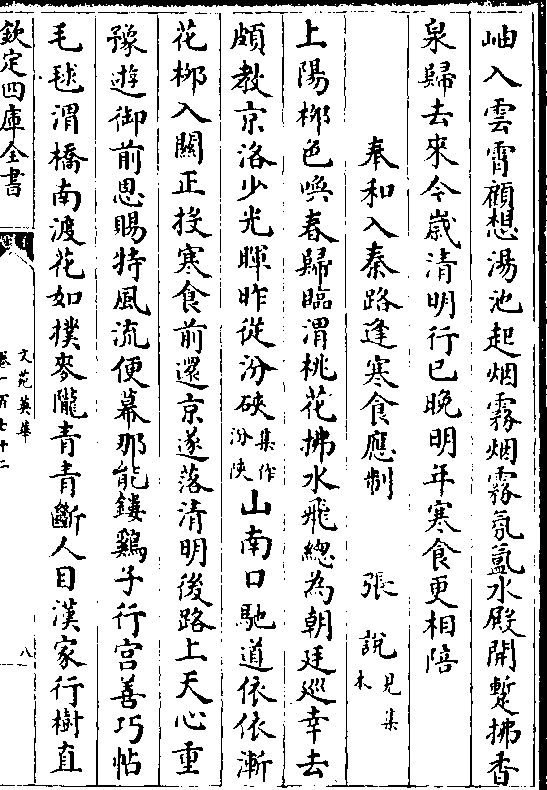 岫入雲霄顧想湯池起烟霧烟霧氛氳水殿開蹔拂香
泉歸去來今嵗清明行已晚明年寒食更相陪
奉和入秦路逢寒食應制 張說見集本
上陽栁色喚春歸臨渭桃花拂水飛總為朝廷巡幸去
頗教京洛少光暉昨從汾硤集作汾陜山南口馳道依依漸
花栁入闗正投寒食前還京遂落清明後路上天心重
豫遊御前恩賜特風流便幕那能鏤鷄子行宫善巧帖
毛毬渭橋南渡花如撲麥隴青青斷人目漢家行樹直
欽定四庫全書
文苑英華
卷一百七十二
八